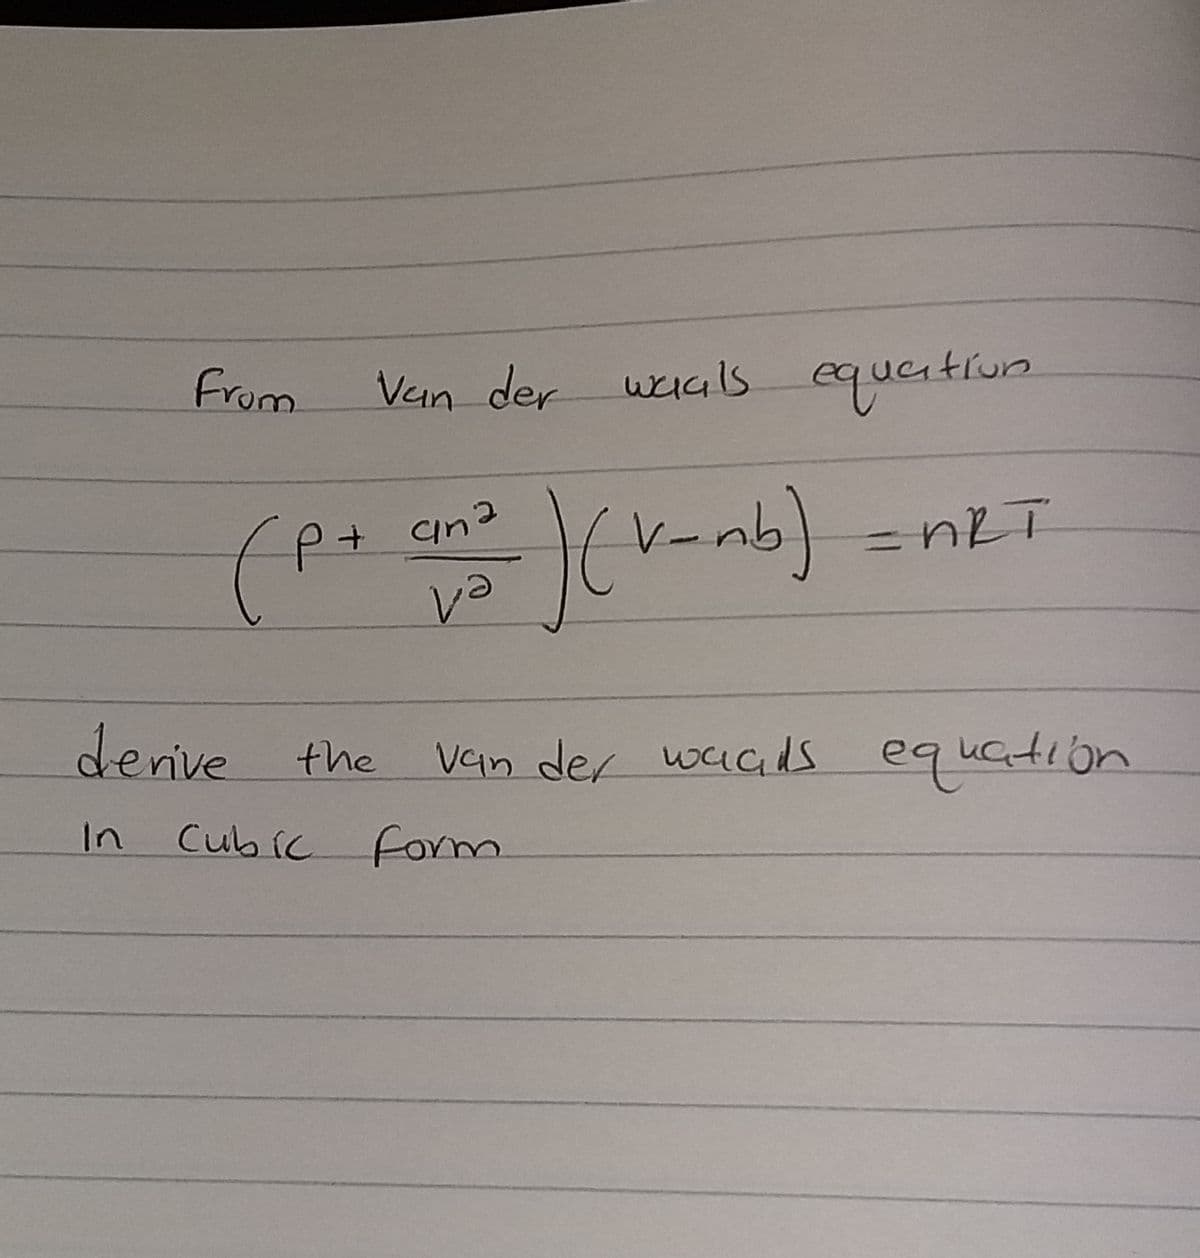 From Van der waals equation
(P + an²/V²)(V-nb) = nRT
derive the van der waals equation
In Cubic form